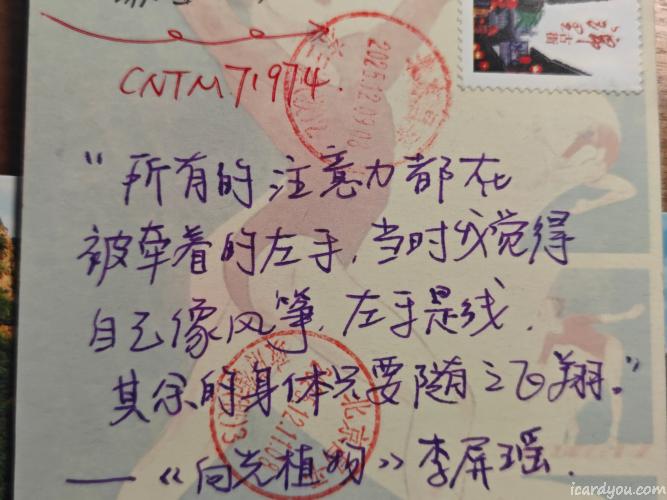 CNTM71974.
2025.12.03.08
"所有的注意力都在
被牵着的左手,当时我觉得
自己像风筝,左手是线.
其余的身体只要随之飞翔."
——《向光植物》李屏瑶.
北京
icardyou.com